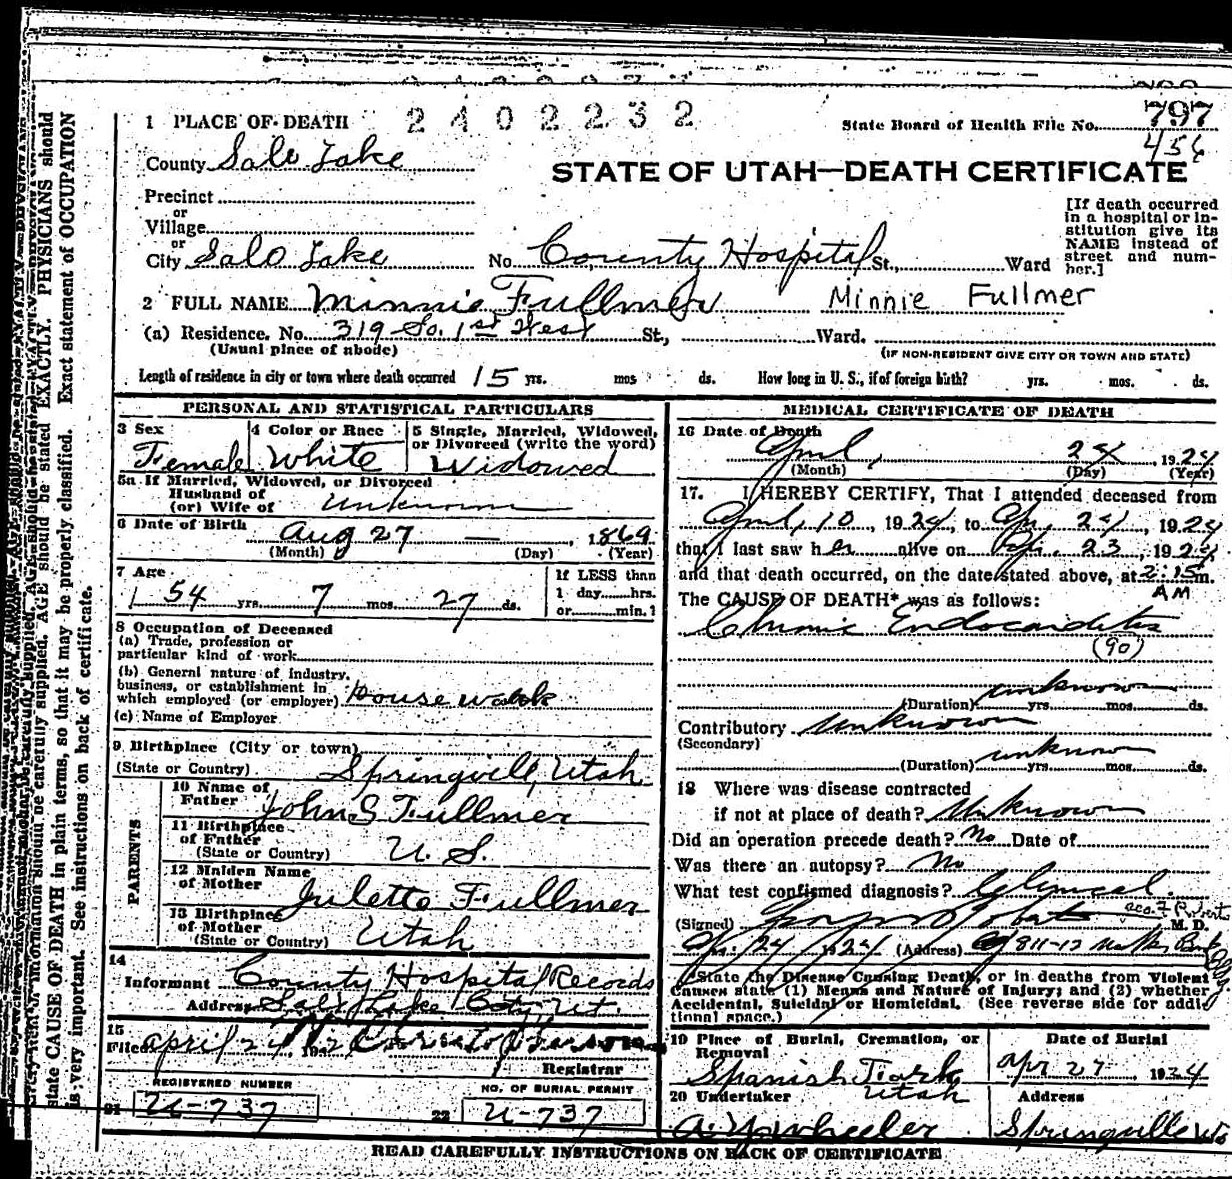 1 PLACE OF DEATH 2402232 State Board of Health File No. 797
456
County Salt Lake
STATE OF UTAH—DEATH CERTIFICATE
Precinct
or
Village
or
City Salt Lake No. County Hospital St., Ward
[If death occurred
in a hospital or in-
stitution give its
NAME instead of
street and num-
ber.]
2 FULL NAME Minnie Fullmer Minnie Fullmer
(a) Residence. No. 319 So. 1st West St., Ward.
(Usual place of abode) (IF NON-RESIDENT GIVE CITY OR TOWN AND STATE)
Length of residence in city or town where death occurred 15 yrs. mos. ds. How long in U. S., if of foreign birth? yrs. mos. ds.
PERSONAL AND STATISTICAL PARTICULARS
3 Sex 4 Color or Race 5 Single, Married, Widowed,
or Divorced (write the word)
Female White Widowed
5a If Married, Widowed, or Divorced
Husband of
(or) Wife of Unknown
6 Date of Birth Aug 27 — , 1869
(Month) (Day) (Year)
7 Age
54 yrs. 7 mos. 27 ds.
If LESS than
1 day......hrs.
or......min.?
8 Occupation of Deceased
(a) Trade, profession or
particular kind of work
(b) General nature of industry,
business, or establishment in
which employed (or employer) House work
(c) Name of Employer
9 Birthplace (City or town)
(State or Country) Springvill, Utah
PARENTS
10 Name of
Father John S Fullmer
11 Birthplace
of Father
(State or Country) U. S.
12 Maiden Name
of Mother Julette Fullmer
13 Birthplace
of Mother
(State or Country) Utah
14
Informant County Hospital Records
Address Salt Lake City, Ut.
15
Filed April 24, 192
Registrar
REGISTERED NUMBER NO. OF BURIAL PERMIT
21 U-737 22 U-737
MEDICAL CERTIFICATE OF DEATH
16 Date of Death
April, 24 1924
(Month) (Day) (Year)
17. I HEREBY CERTIFY, That I attended deceased from
April, 10, 1924, to Apr. 24, 1924
that I last saw her alive on Ap. 23, 1924
and that death occurred, on the date stated above, at 2:15 m.
AM
The CAUSE OF DEATH* was as follows:
Chronic Endocarditis
(90)
unknown
(Duration) yrs. mos. ds.
Contributory Unknown
(Secondary)
unknown
(Duration) yrs. mos. ds.
18 Where was disease contracted
if not at place of death? Unknown
Did an operation precede death? No Date of
Was there an autopsy? No
What test confirmed diagnosis? Clynical.
(Signed) Roberts M. D.
Apr. 24, 1924 (Address) 811-12
*State the Disease Causing Death, or in deaths from Violent
Causes state (1) Means and Nature of Injury; and (2) whether
Accidental, Suicidal or Homicidal. (See reverse side for addi-
tional space.)
19 Place of Burial, Cremation, or
Removal
Spanish Fork
Utah
Date of Burial
Apr 27, 1924
20 Undertaker Address
A. Y. Wheeler Springville Ut
READ CAREFULLY INSTRUCTIONS ON BACK OF CERTIFICATE
AGE should be stated EXACTLY. PHYSICIANS should
state CAUSE OF DEATH in plain terms, so that it may be properly classified. Exact statement of OCCUPATION
is very important. See instructions on back of certificate.